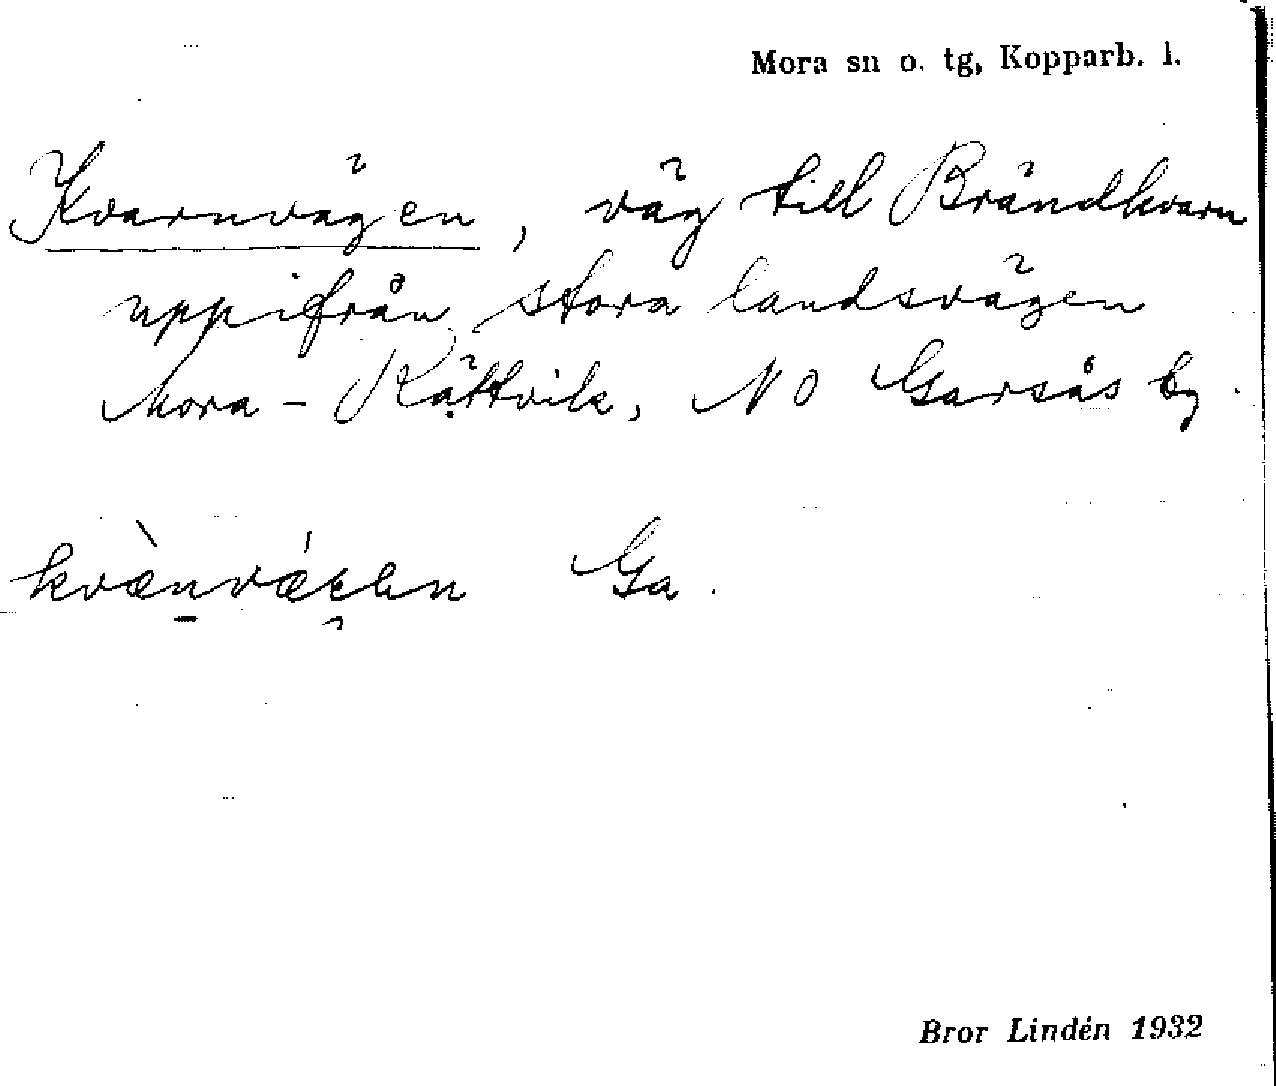 Mora sn o. tg, Kopparb. l.
Kvarnvägen, väg till Brändkvarn
uppifrån stora landsvägen
Mora - Rättvik, NO Garsås by.
Ga.
Bror Lindén 1932